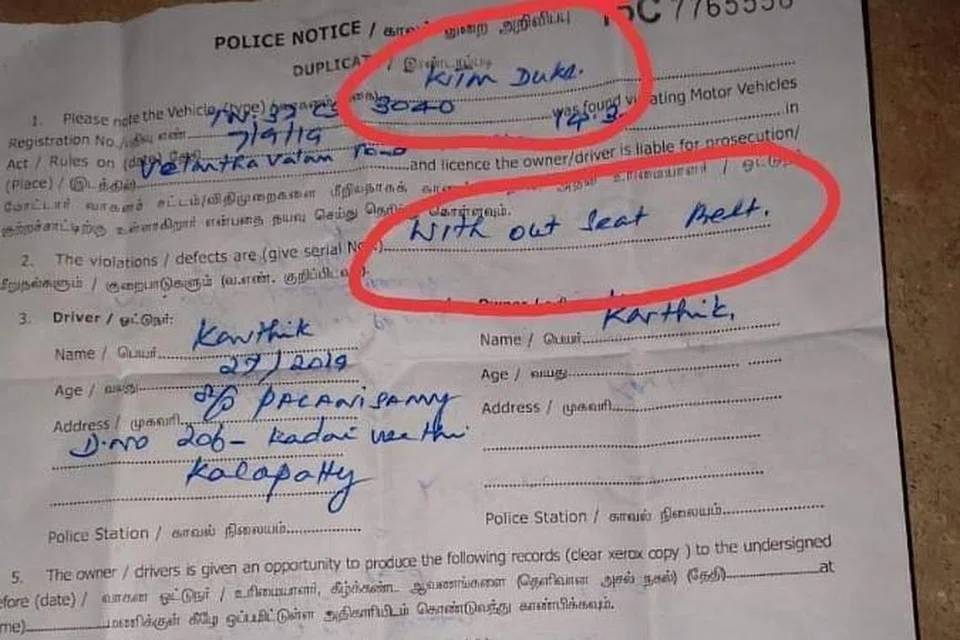 TSC 7765556
POLICE NOTICE / காவல் துறை அறிவிப்பு
DUPLICATE /
KTM Duke.
1. Please note the Vehicle (type)
Registration No./ TN 37 3040 was found violating Motor Vehicles
Act / Rules on (date) 7/9/19 in
(Place) / இடத்தில் and licence the owner/driver is liable for prosecution/
மோட்டார் வாகனச் சட்டம்/விதிமுறைகளை மீறியதாகக் உரிமையாளர் / ஓட்டுநர்
குற்றச்சாட்டிற்கு உள்ளாகிறார் என்பதை தயவு செய்து தெரிந்து கொள்ளவும்.
With out Seat Belt.
2. The violations / defects are (give serial No.)
மீறுதல்களும் / குறைபாடுகளும் (வ.எண். குறிப்பிடவும்).
3. Driver / ஓட்டுநர்:
Name / பெயர் Karthik
Age / வயது 27/2019
Address / முகவரி S/o PALANISAMY
D.NO 206- Kadai veethi
Kalapatty
Police Station / காவல் நிலையம்
Name / பெயர் Karthik,
Age / வயது
Address / முகவரி
Police Station / காவல் நிலையம்
5. The owner / drivers is given an opportunity to produce the following records (clear xerox copy ) to the undersigned
before (date) / வாகன ஓட்டுநர் / உரிமையாளர், கீழ்க்கண்ட ஆவணங்களை (தெளிவான அசல் நகல்) (தேதி) at
மணிக்குள் கீழே ஒப்பமிட்டுள்ள அதிகாரியிடம் கொண்டுவந்து காண்பிக்கவும்.